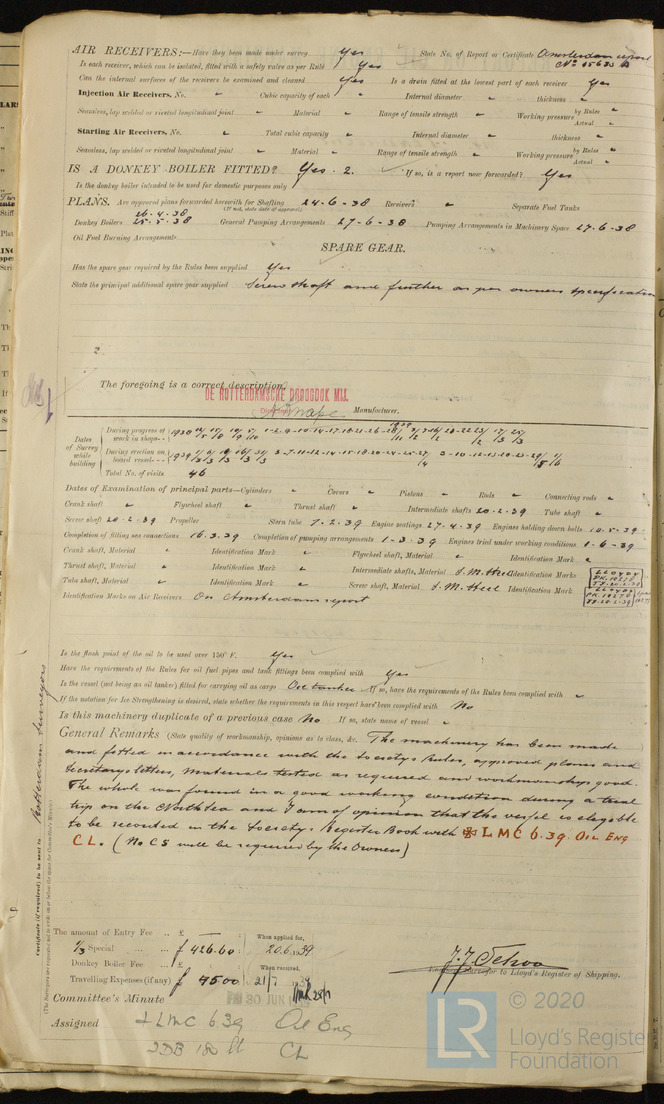 AIR RECEIVERS:—Have they been made under survey Yes State No. of Report or Certificate Amsterdam report
No 15633 A
Is each receiver, which can be isolated, fitted with a safety valve as per Rule Yes
Can the internal surfaces of the receivers be examined and cleaned Yes Is a drain fitted at the lowest part of each receiver Yes
Injection Air Receivers, No. " Cubic capacity of each " Internal diameter " thickness "
Seamless, lap welded or riveted longitudinal joint " Material " Range of tensile strength " Working pressure by Rules "
Actual "
Starting Air Receivers, No. " Total cubic capacity " Internal diameter " thickness "
Seamless, lap welded or riveted longitudinal joint " Material " Range of tensile strength " Working pressure by Rules "
Actual "
IS A DONKEY BOILER FITTED? Yes. 2. If so, is a report now forwarded? Yes
Is the donkey boiler intended to be used for domestic purposes only
PLANS. Are approved plans forwarded herewith for Shafting 24-6-38 Receivers " Separate Fuel Tanks
(If not, state date of approval)
26-4-38
Donkey Boilers 25-5-38 General Pumping Arrangements 27-6-38 Pumping Arrangements in Machinery Space 27-6-38
Oil Fuel Burning Arrangements
SPARE GEAR.
Has the spare gear required by the Rules been supplied Yes
State the principal additional spare gear supplied Screw shaft and further as per owners specification
The foregoing is a correct description,
DE ROTTERDAMSCHE DROOGDOK MIJ.
Manufacturer.
Dates of Survey while building
During progress of work in shops - -
During erection on board vessel - - -
Total No. of visits 46
Dates of Examination of principal parts—Cylinders " Covers " Pistons " Rods " Connecting rods "
Crank shaft " Flywheel shaft " Thrust shaft " Intermediate shafts 20-2-39 Tube shaft "
Screw shaft 20-2-39 Propeller Stern tube 7-2-39 Engine seatings 27-4-39 Engines holding down bolts 10-5-39
Completion of fitting sea connections 16.3.39 Completion of pumping arrangements 1-3-39 Engines tried under working conditions 1-6-39
Crank shaft, Material " Identification Mark " Flywheel shaft, Material " Identification Mark "
Thrust shaft, Material " Identification Mark " Intermediate shafts, Material S.M. Steel Identification Marks
Tube shaft, Material " Identification Mark " Screw shaft, Material S.M. Steel Identification Mark
LLOYDS
LLOYDS
Identification Marks on Air Receivers On Amsterdam report
Is the flash point of the oil to be used over 150° F. Yes
Have the requirements of the Rules for oil fuel pipes and tank fittings been complied with Yes
Is the vessel (not being an oil tanker) fitted for carrying oil as cargo Oil tanker If so, have the requirements of the Rules been complied with "
If the notation for Ice Strengthening is desired, state whether the requirements in this respect have been complied with No
Is this machinery duplicate of a previous case No If so, state name of vessel "
General Remarks (State quality of workmanship, opinions as to class, &c. The machinery has been made
and fitted in accordance with the Society's Rules, approved plans and
Secretary's letters, materials tested as required and workmanship good.
The whole was found in a good working condition during a trial
trip on the North Sea and I am of opinion that the vessel is eligible
to be recorded in the Society's Register Book with ✠ LMC 6.39. OIL ENG
CL. (No CS will be required by the Owners)
Certificate (if required) to be sent to Rotterdam Surveyors
(The Surveyors are requested not to write on or below the space for Committee's Minute).
The amount of Entry Fee .. £
1/3 Special .. .. f 426.60 : When applied for, 20.6.1939
Donkey Boiler Fee .. £
Travelling Expenses (if any) f 45.00 : When received, 21/7 1939
Surveyor to Lloyd's Register of Shipping.
Committee's Minute FRI 30 JUN
Assigned + LMC 6.39 Oil Eng
2DB 180 lb CL
© 2020
Lloyd's Register
Foundation
LR